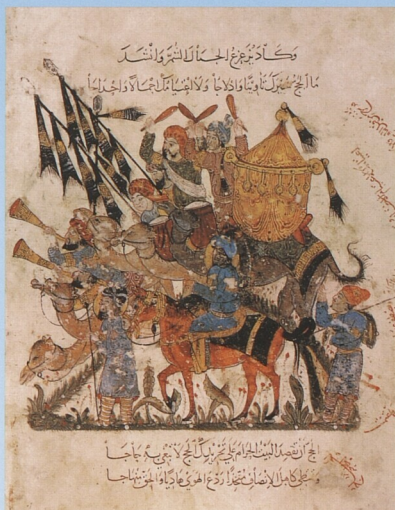 وكاد يزعزع الجبال الشم وانشد
ما الحج سيرك تأويبا وادلاجا ولا اعتيامك اجمالا واحداجا
الحج أن تقصد البيت الحرام على تجريدك الحج لا تبغي به حاجا
وتمتطي كاهل الانصاف متخذا ردع الهوى هاديا والحق منهاجا